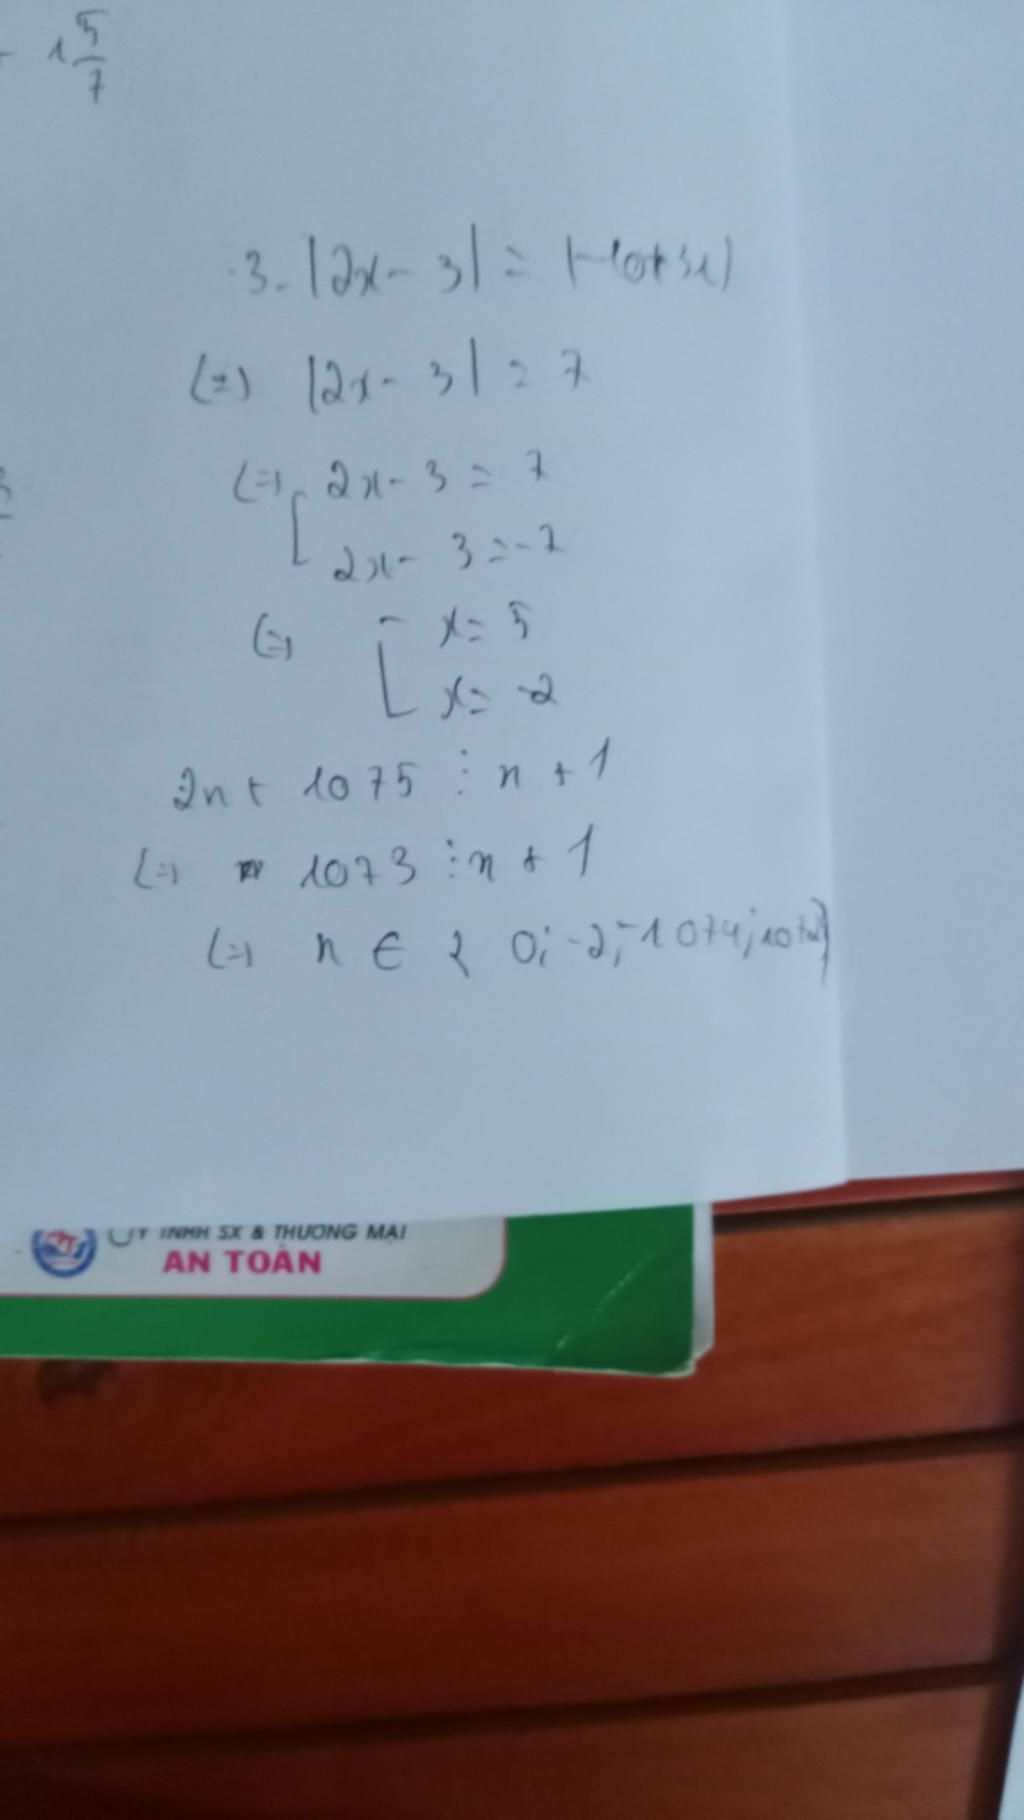 1 5/7
3. |2x - 3| = |-10+31|
(=) |2x - 3| = 7
(=) [ 2x - 3 = 7
2x - 3 = -7
(=) [ x = 5
x = -2
2n + 1075 ⋮ n + 1
(=) 1073 ⋮ n + 1
(=) n ∈ { 0; -2; -1074; 1072}
TNHH SX & THƯƠNG MẠI
AN TOÀN